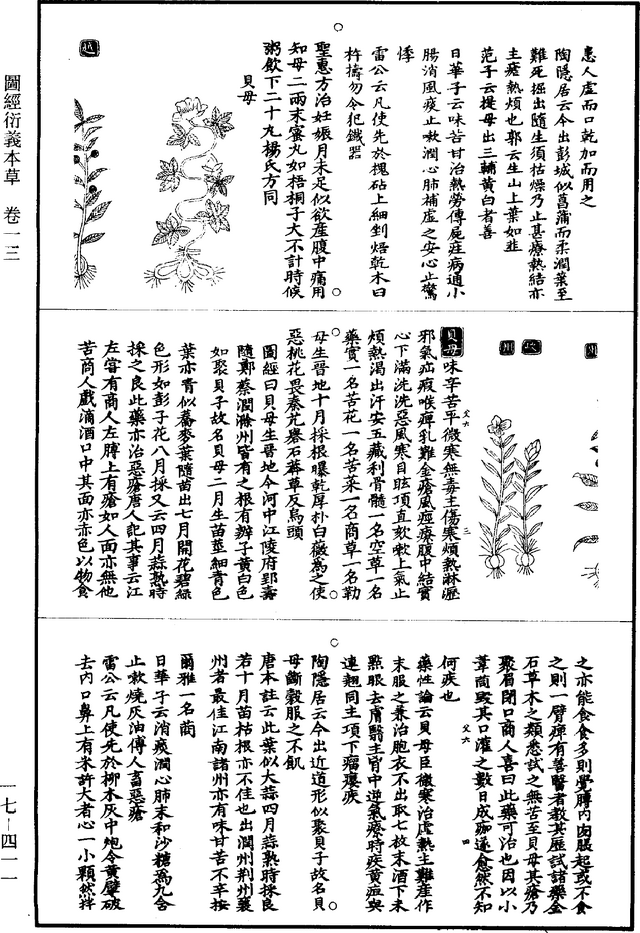 圖經衍義本草　卷一三
一七—四一一
患人虛而口乾加而用之
陶隱居云今出彭城似菖蒲而柔潤葉至
難死掘出隨生須枯燥乃止甚療熱結亦
主瘧熱煩也郭云生山上葉如韭
范子云提母出三輔黃白者善
日華子云味苦甘治熱勞傳屍疰病通小
腸消風痰止嗽潤心肺補虛之安心止驚
悸
雷公云凡使先於槐砧上細剉焙乾木臼
杵擣勿令犯鐵器
聖惠方治妊娠月未足似欲產腹中痛用
知母二兩末蜜丸如梧桐子大不計時候
粥飲下二十九楊氏方同
貝母
越
州
貝母味辛苦平微寒無毒主傷寒煩熱淋瀝
邪氣疝瘕喉痹乳難金瘡風痙療腹中結實
心下滿洗洗惡風寒目眩項直欬嗽上氣止
煩熱渴出汗安五藏利骨髓一名空草一名
藥實一名苦花一名苦菜一名商草一名勒
母生晉地十月採根曝乾厚朴白薇為之使
惡桃花畏秦艽礜石莽草反烏頭
圖經曰貝母生晉地今河中江陵府郢壽
隨鄭蔡潤滁州皆有之根有瓣子黃白色
如聚貝子故名貝母二月生苗莖細青色
葉亦青似蕎麥葉隨苗出七月開花碧綠
色形如彭子花八月採又云四月蒜熟時
採之良此藥亦治惡瘡唐人記其事云江
左嘗有商人左膊上有瘡如人面亦無他
苦商人戲滴酒口中其面亦赤色以物食
之亦能食食多則覺膊內肉脹起或不食
之則一臂痹有善醫者教其歷試諸藥金
石草木之類悉試之無苦至貝母其瘡乃
聚眉閉口商人喜曰此藥可治也因以小
葦筒毀其口灌之數日成痂遂愈然不知
何疾也
藥性論云貝母臣微寒治虛熱主難產作
末服之兼治胞衣不出取七枚末酒下末
點眼去膚翳主胷中逆氣療時疾黃疸與
連翹同主項下瘤癭疾
陶隱居云今出近道形似聚貝子故名貝
母斷穀服之不飢
唐本註云此葉似大蒜四月蒜熟時採良
若十月苗枯根亦不佳也出潤州荊州襄
州者最佳江南諸州亦有味甘苦不辛按
爾雅一名莔
日華子云消痰潤心肺末和沙糖為丸含
止嗽燒灰油傅人畜惡瘡
雷公云凡使先於柳木灰中炮令黃擘破
去內口鼻上有米許大者心一小顆然拌